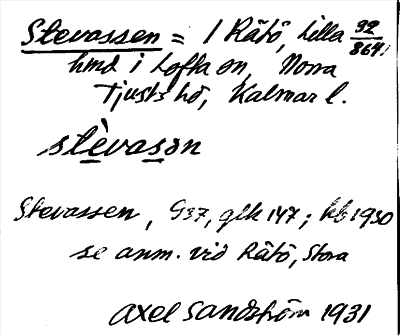 Stevassen = 1 Råtö, Lilla 92/864,
hmd i Lofta sn, Norra
Tjusts hd, Kalmar l.
stèvasən
Stevassen, G37, glk 147; kb 1930
se anm. vid Råtö, Stora
Axel Sandström 1931